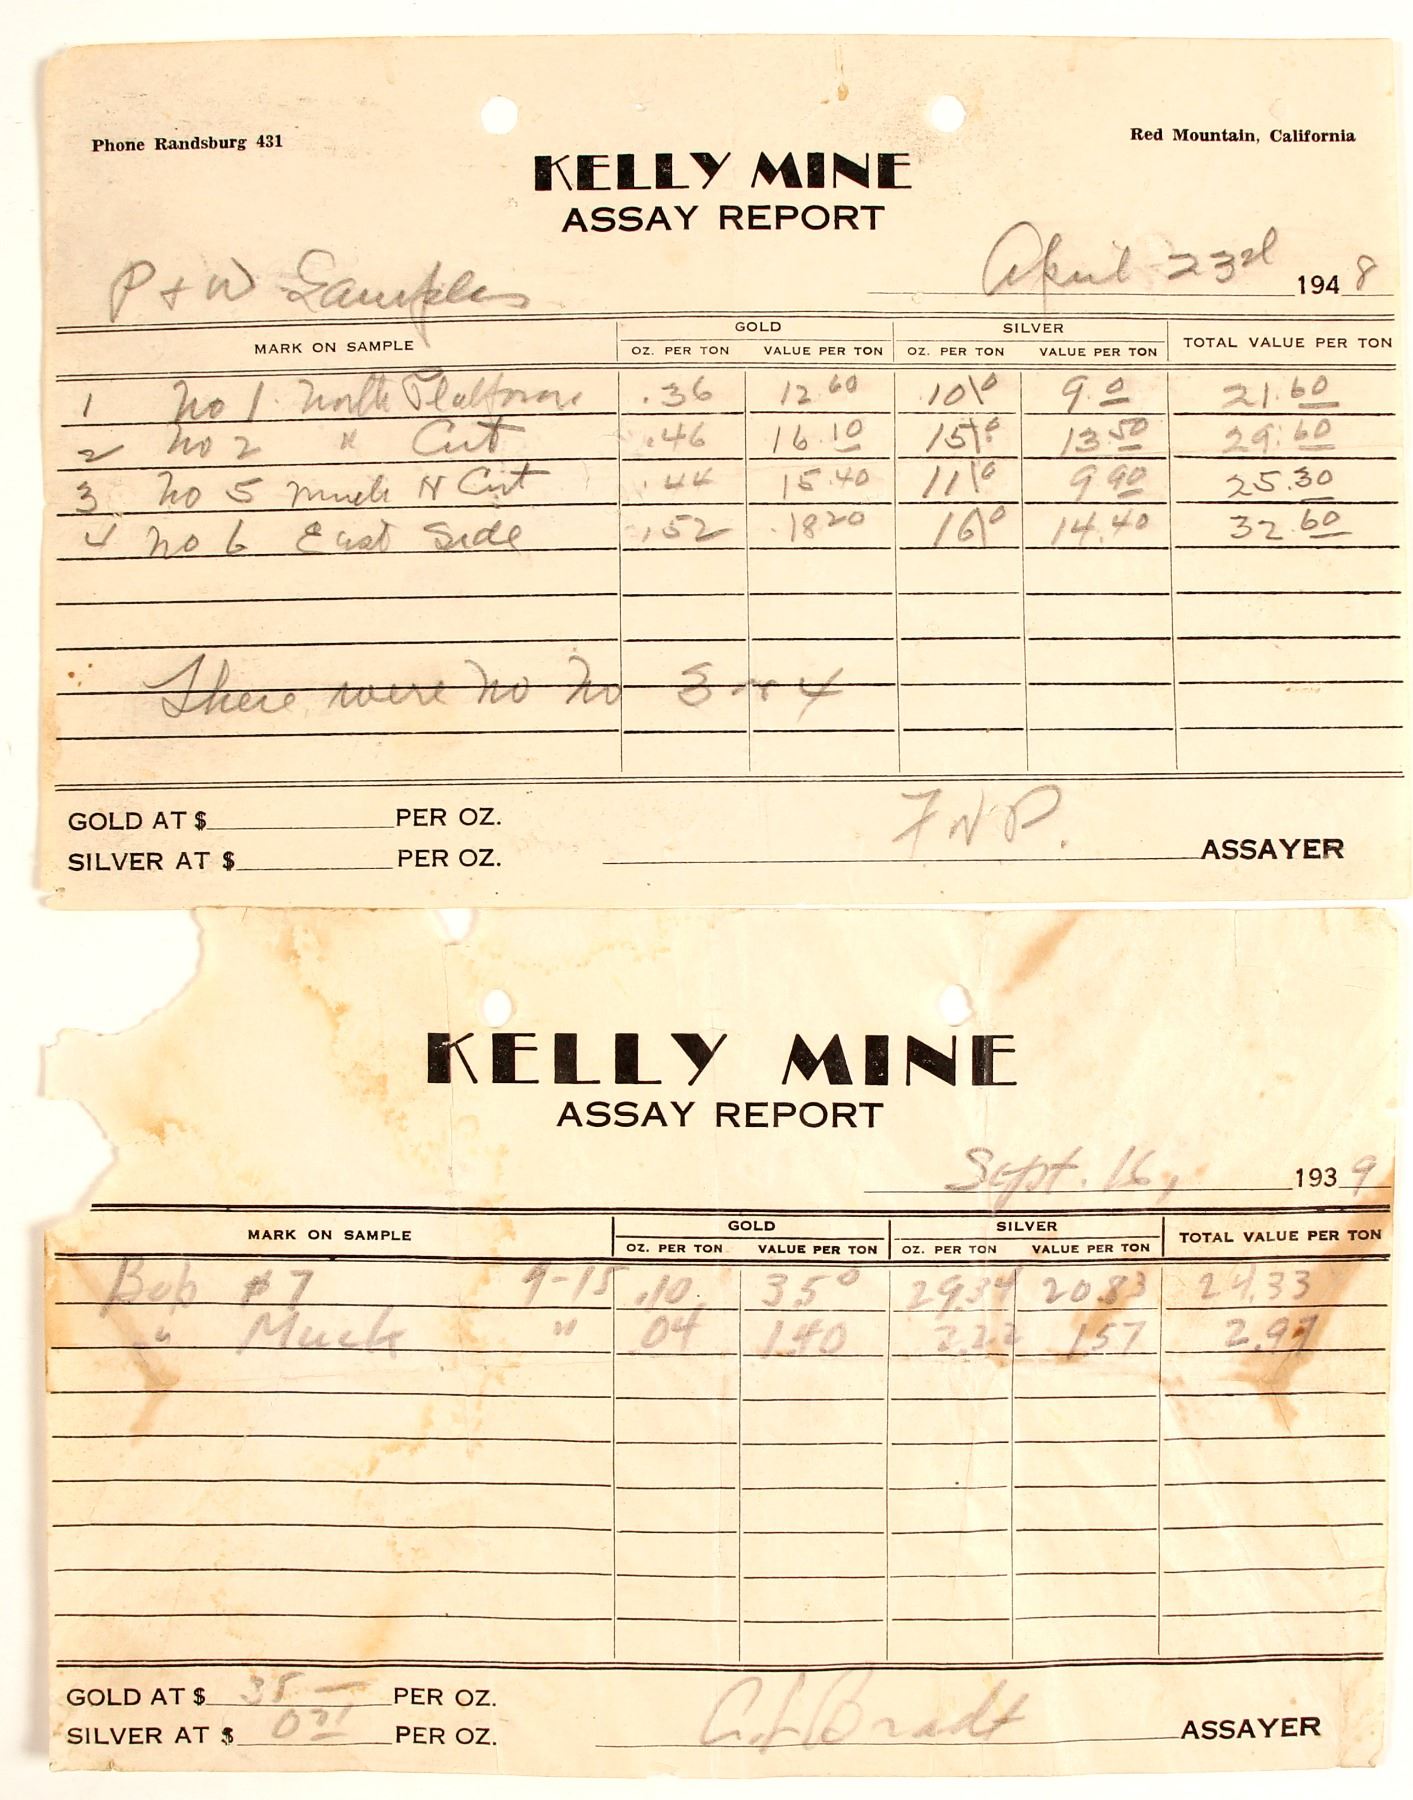 Phone Randsburg 431
Red Mountain, California
KELLY MINE
ASSAY REPORT
P + W Samples
April 23rd 1948
MARK ON SAMPLE
GOLD
OZ. PER TON VALUE PER TON
SILVER
OZ. PER TON VALUE PER TON
TOTAL VALUE PER TON
1 No 1 North Platform .36 12.60 10.0 9.0 21.60
2 No 2 " Cut .46 16.10 15.0 13.50 29.60
3 No 5 Muck N Cut .44 15.40 11.0 9.90 25.30
4 No 6 East Side .52 18.20 16.0 14.40 32.60
There were no No 3 or 4
GOLD AT $ PER OZ.
SILVER AT $ PER OZ.
F N P. ASSAYER
KELLY MINE
ASSAY REPORT
Sept. 16, 1939
MARK ON SAMPLE
GOLD
OZ. PER TON VALUE PER TON
SILVER
OZ. PER TON VALUE PER TON
TOTAL VALUE PER TON
Bob #7 9-15 .10 3.50 29.34 20.83 24.33
" Muck " .04 1.40 2.22 1.57 2.97
GOLD AT $ 35 — PER OZ.
SILVER AT $ 0.71 PER OZ.
Bradt ASSAYER